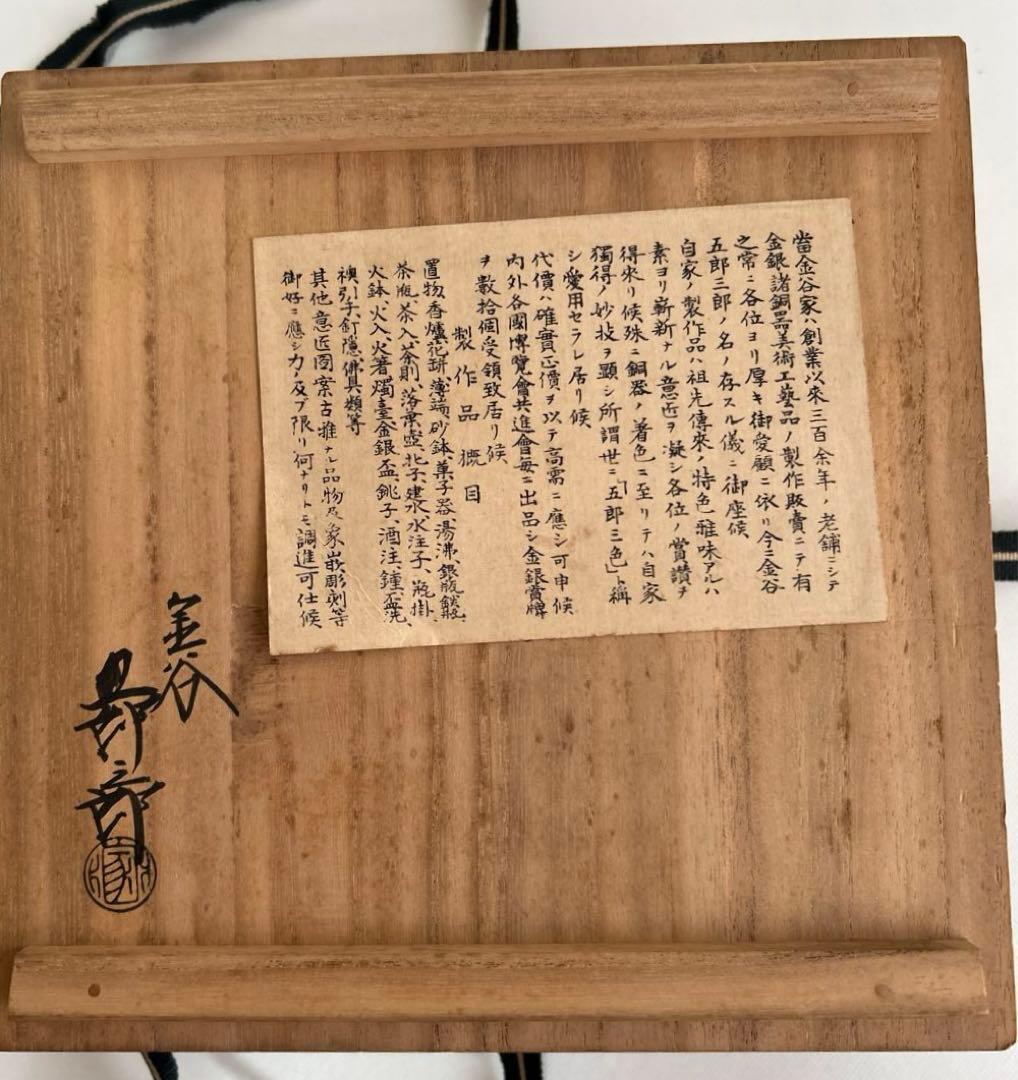 當金谷家ハ創業以來三百余年ノ老舗ニシテ
金銀諸銅器美術工藝品ノ製作販賣ニテ有
之常ニ各位ヨリ厚キ御愛顧ニ依リ今ニ金谷
五郎三郎ノ名ノ存スル儀ニ御座候
自家ノ製作品ハ祖先傳來ノ特色雅味アルハ
素ヨリ嶄新ナル意匠ヲ凝シ各位ノ賞讃ヲ
得來リ候殊ニ銅器ノ着色ニ至リテハ自家
獨得ノ妙技ヲ顕シ所謂世ニ「五郎三色」ト稱
シ愛用セラレ居リ候
代價ハ確實正價ヲ以テ高需ニ應シ可申候
内外各國博覧會共進會毎ニ出品シ金銀賞牌
ヲ數拾個受領致居リ候
製作品概目
置物、香爐、花缾、薄端、砂鉢、菓子器、湯沸、銀瓶、鉄瓶、
茶瓶、茶入、茶則、落葉壺、北子、建水、水注子、瓶掛、
火鉢、火入、火箸、燭臺、金銀盃、銚子、酒注、鍾、盃洗、
襖引手、釘隠、佛具類等
其他意匠圖案古雅ナル品物及象嵌彫刻等
御好ニ應シ力ノ及ブ限リ何ナリトモ調進可仕候
金谷
五郎三郎